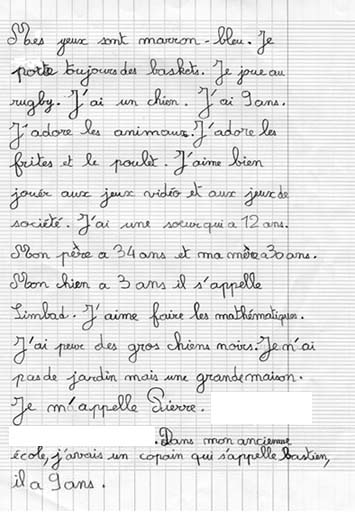 Mes yeux sont marron-bleu. Je
porte toujours des baskets. Je joue au
rugby. J'ai un chien. J'ai 9 ans.
J'adore les animaux. J'adore les
frites et le poulet. J'aime bien
jouer aux jeux vidéo et aux jeux de
société. J'ai une soeur qui a 12 ans.
Mon père a 34 ans et ma mère a 30 ans.
Mon chien a 3 ans il s'appelle
Simbad. J'aime faire les mathématiques.
J'ai peur des gros chiens noirs. Je n'ai
pas de jardin mais une grande maison.
Je m'appelle Pierre.
. Dans mon ancienne
école, j'avais un copain qui s'appelle Bastien,
il a 9 ans.